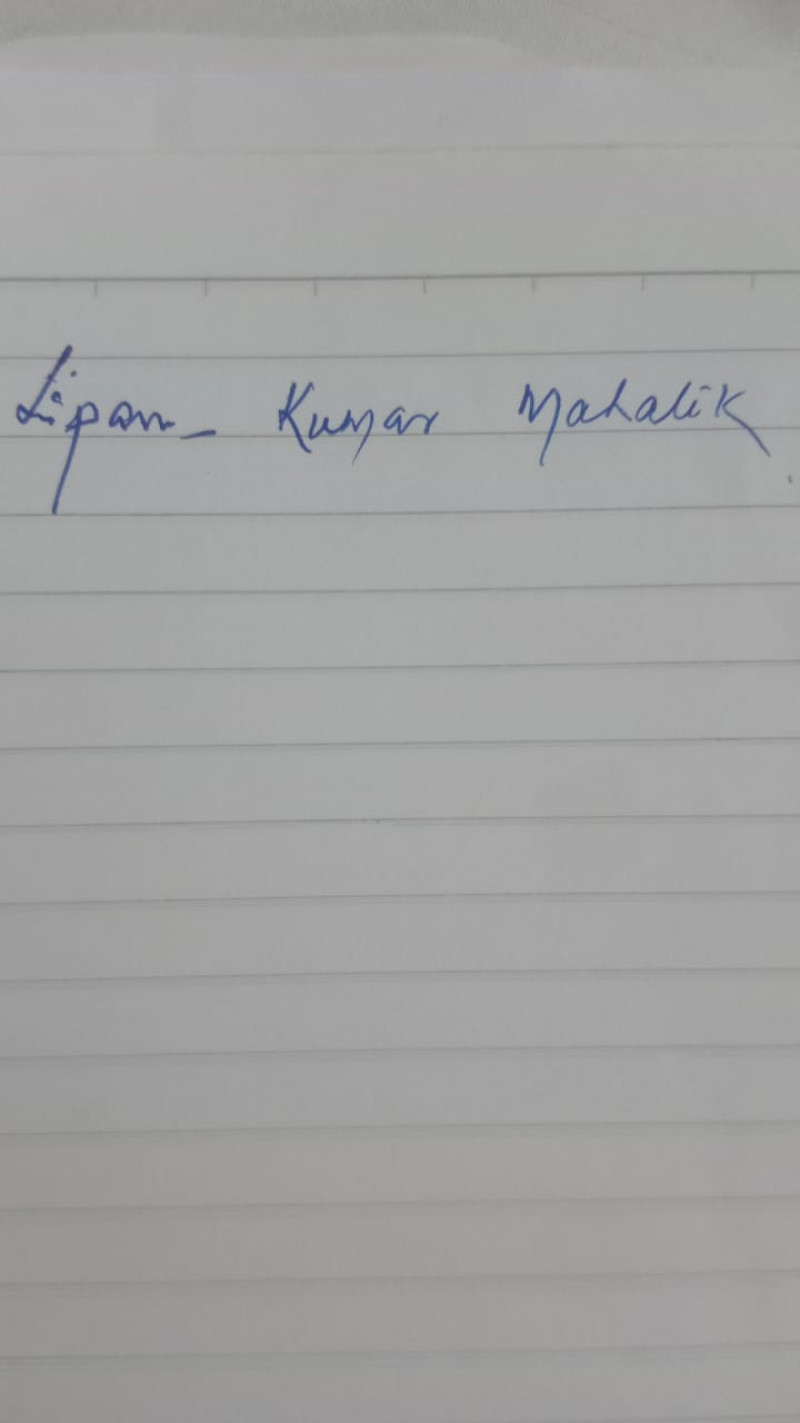 Lipan Kumar Mahalik